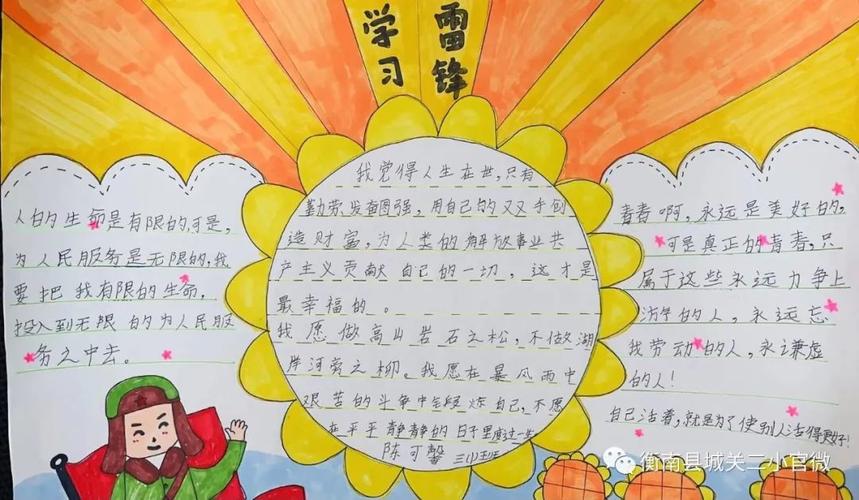 学习
雷锋
人的生命是有限的,可是,
为人民服务是无限的,我
要把我有限的生命,
投入到无限的为人民服
务之中去。
我觉得人生在世,只有
勤劳、发奋图强,用自己的双手创
造财富,为人类的解放事业共
产主义贡献自己的一切,这才是
最幸福的。
我愿做高山岩石之松,不做湖
岸河旁之柳。我愿在暴风雨中
艰苦的斗争中锻炼自己,不愿
在平平静静的日子里度过一生
陈可馨
青春啊,永远是美好的,
可是真正的青春,只
属于这些永远力争上
游的人,永远忘
我劳动的人,永谦虚
的人!
自己活着,就是为了使别人活得更好!
衡南县城关二小官微